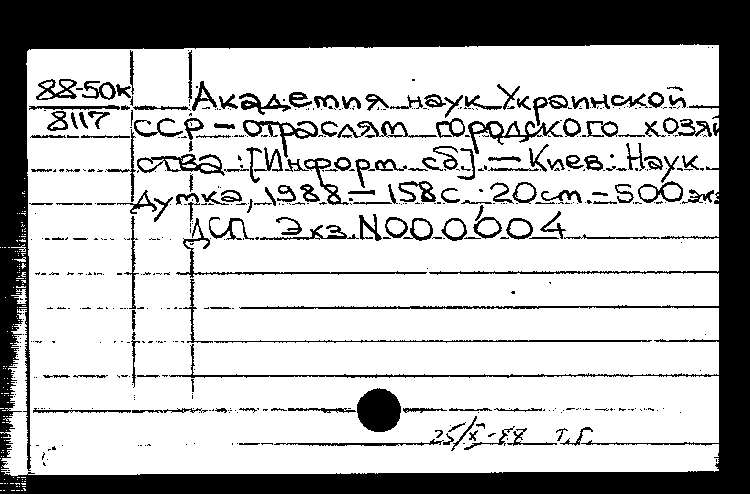 88-50к
8117
Академия наук Украинской
ССР – отраслям городского хозяй
ства : [Информ. сб.]. – Киев : Наук.
думка, 1988. – 158 с. ; 20 см. – 500 экз
ДСП Экз. N000004
25/X-88 Т.Г.